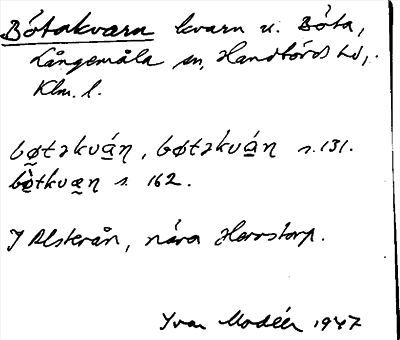 Bótakvarn kvarn u. Bóta,
Långemåla sn, Handbörds hd,
Klm. l.
bø̰təkvá̱ɳ, bøtəkvá̱ɳ s. 131.
bø̱̀tkvæ̱ɳ s. 162.
I Alsterån, nära Herrstorp.
Yvar Modéer 1947